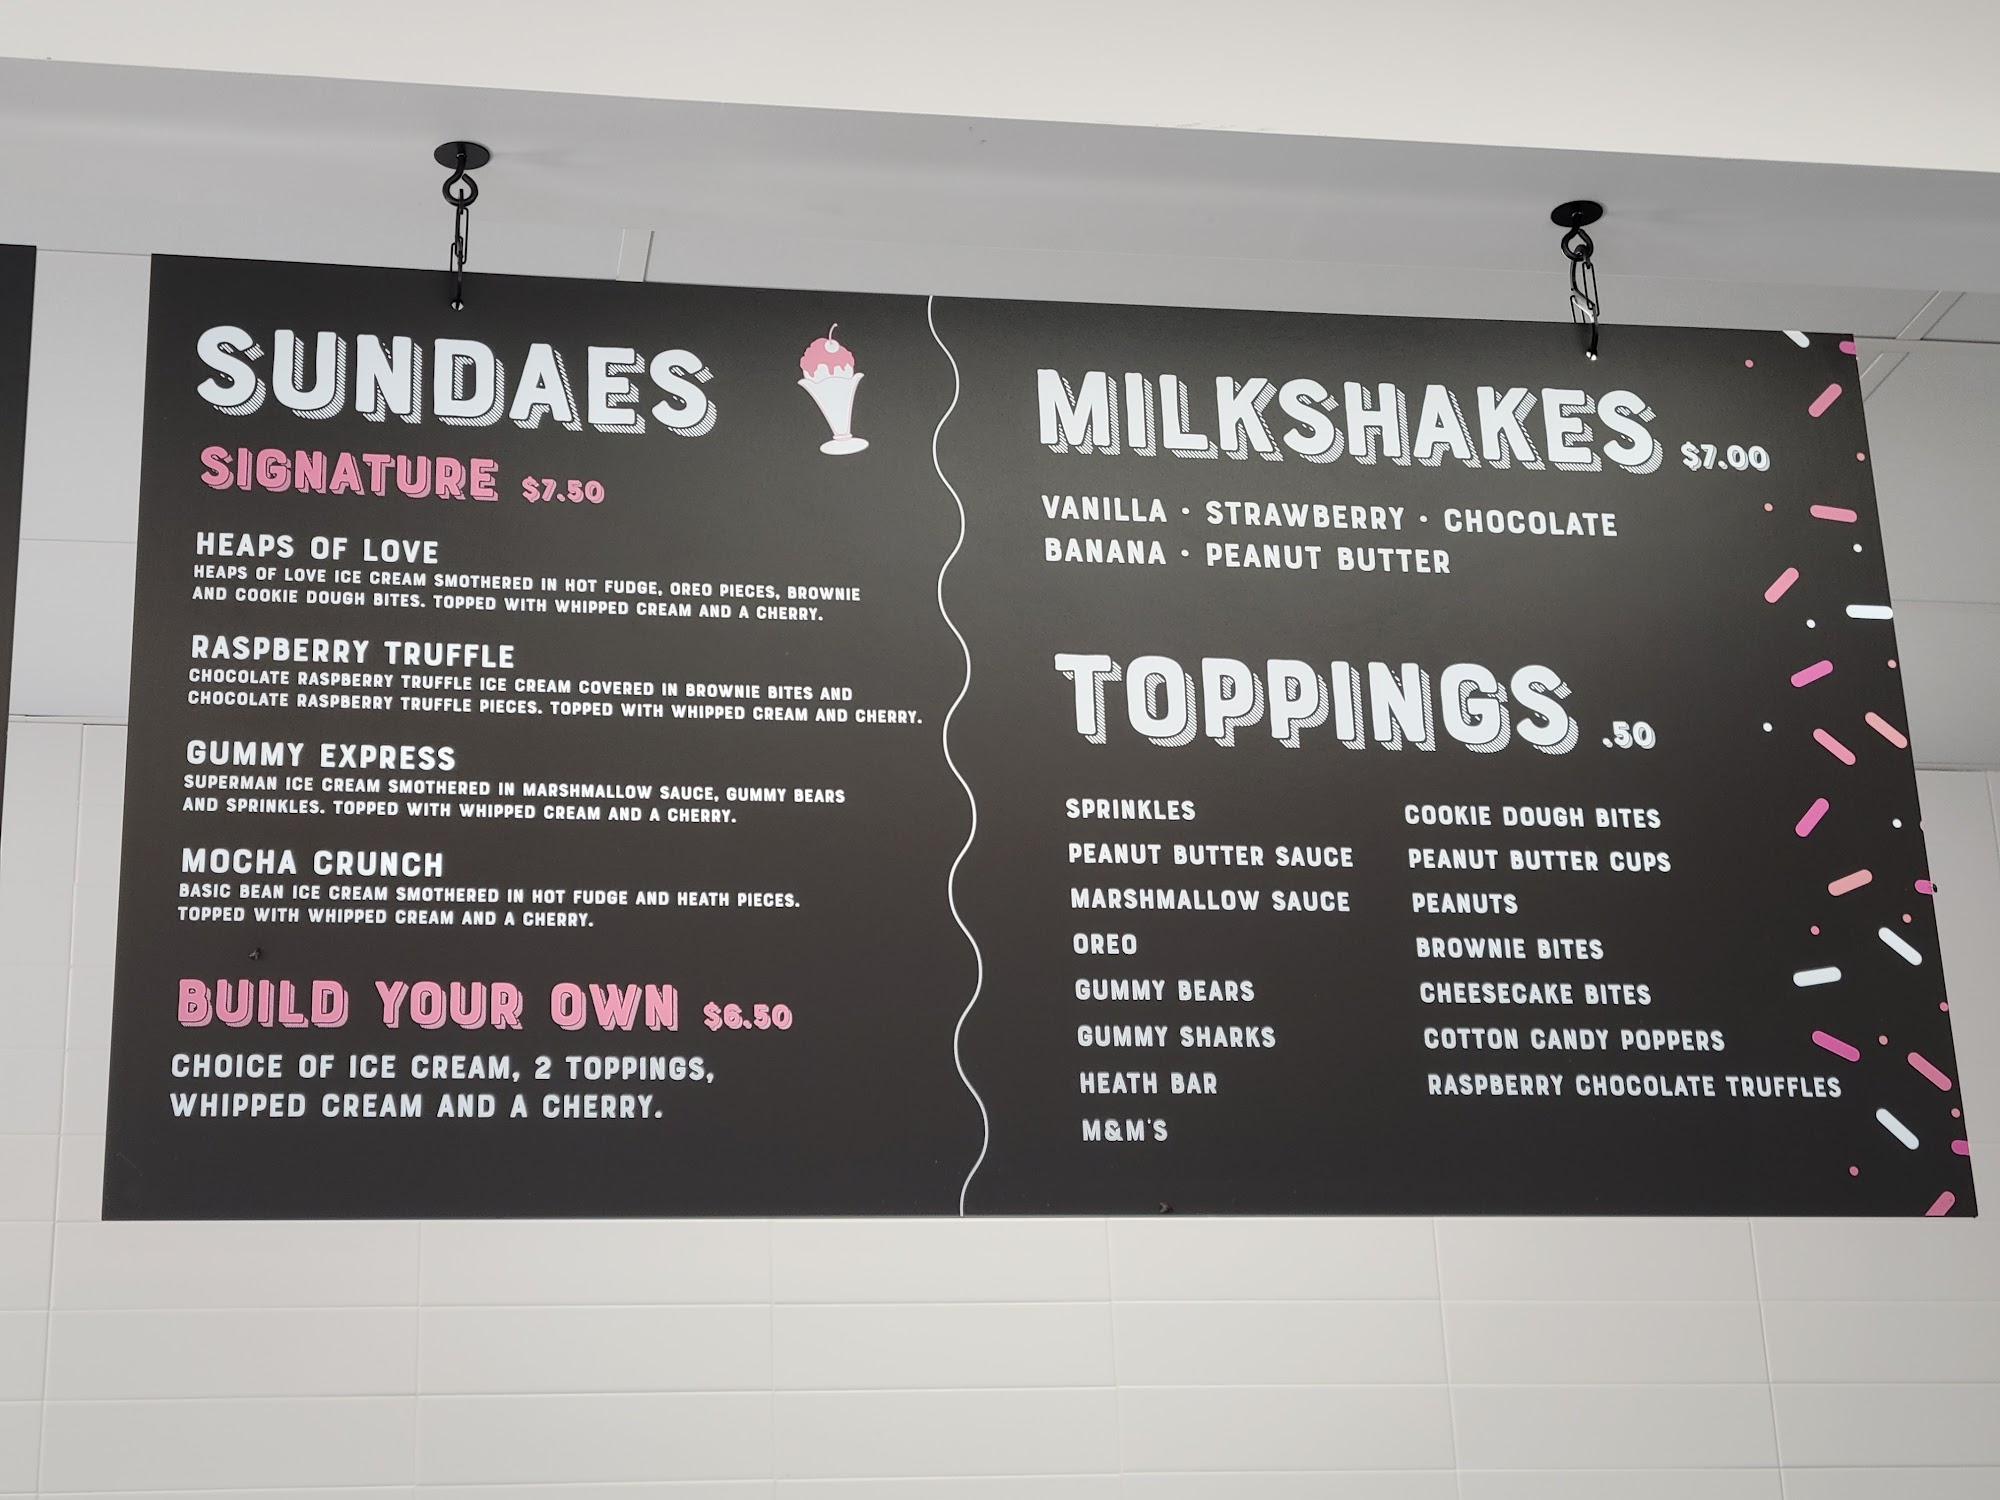 SUNDAES
SIGNATURE $7.50
HEAPS OF LOVE
HEAPS OF LOVE ICE CREAM SMOTHERED IN HOT FUDGE, OREO PIECES, BROWNIE
AND COOKIE DOUGH BITES. TOPPED WITH WHIPPED CREAM AND A CHERRY.
RASPBERRY TRUFFLE
CHOCOLATE RASPBERRY TRUFFLE ICE CREAM COVERED IN BROWNIE BITES AND
CHOCOLATE RASPBERRY TRUFFLE PIECES. TOPPED WITH WHIPPED CREAM AND CHERRY.
GUMMY EXPRESS
SUPERMAN ICE CREAM SMOTHERED IN MARSHMALLOW SAUCE, GUMMY BEARS
AND SPRINKLES. TOPPED WITH WHIPPED CREAM AND A CHERRY.
MOCHA CRUNCH
BASIC BEAN ICE CREAM SMOTHERED IN HOT FUDGE AND HEATH PIECES.
TOPPED WITH WHIPPED CREAM AND A CHERRY.
BUILD YOUR OWN $6.50
CHOICE OF ICE CREAM, 2 TOPPINGS,
WHIPPED CREAM AND A CHERRY.
MILKSHAKES $7.00
VANILLA • STRAWBERRY • CHOCOLATE
BANANA • PEANUT BUTTER
TOPPINGS .50
SPRINKLES
PEANUT BUTTER SAUCE
MARSHMALLOW SAUCE
OREO
GUMMY BEARS
GUMMY SHARKS
HEATH BAR
M&M'S
COOKIE DOUGH BITES
PEANUT BUTTER CUPS
PEANUTS
BROWNIE BITES
CHEESECAKE BITES
COTTON CANDY POPPERS
RASPBERRY CHOCOLATE TRUFFLES